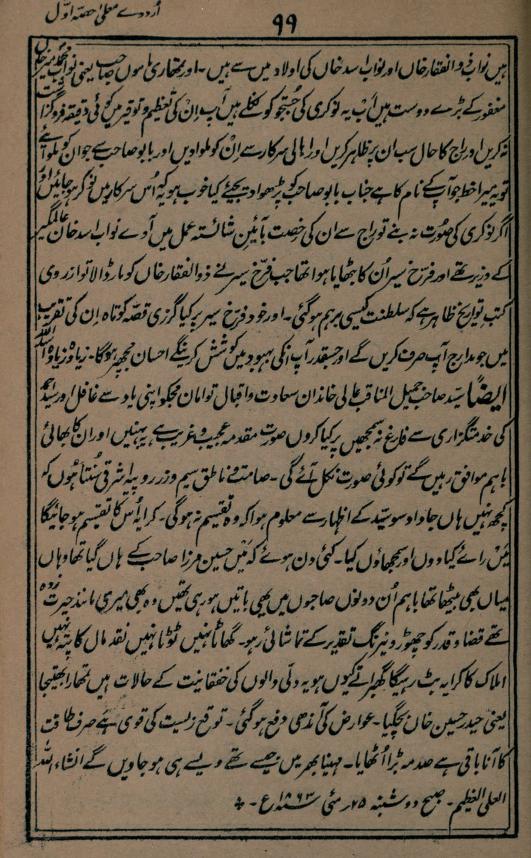 اردوے معلیٰ حصّہ اوّل
۹۹
ہیں نواب ذوالفقار خاں اور نواب اسد خاں کی اولاد میں سے ہیں۔ اور تمھاری ماموں صاحب یعنی نواب
مغفور کے بڑے دوست ہیں اب یہ نوکری کی جستجو کو نکلے ہیں آپ ان کی تعظیم و توقیر میں کوئی دقیقہ فروگذاشت
نہ کریں اور راج کا حال سب ان پر ظاہر کریں اور اہالی سرکار سے ان کو ملوادیں اور بابو صاحب سے جو ان کو ملوانے
تو میرا خط جو آپ کے نام کا ہے جناب بابو صاحب کو پڑھوا دیجئے کیا خوب ہو کہ اُس سرکار میں نوکر ہو جائیں اور
اگر نوکری کی صورت نہ بنے تو راج سے ان کی رخصت بآئین شائستہ عمل میں آوے نواب اسد خان عالمگیر
کے وزیر تھے اور فرخ سیر اُن کا بٹھایا ہوا تھا جب فرخ سیر نے ذوالفقار خاں کو مار ڈالا تو از روی
کتب تواریخ ظاہر ہے کہ سلطنت کیسی برہم ہوگئی۔ اور خود فرخ سیر پر کیا گزری قصہ کوتاہ ان کی تقریب
میں جو مدارج آپ صرف کریں گے اور جسقدر آپ انکی بہبود میں کوشش کرینگے احسان مجھپر ہوگا۔ زیادہ زیادہ
ایضاً سید صاحب جمیل المناقب عالی خاندان سعادت و اقبال توامان مجکو اپنی یاد سے غافل اور سید احمد
کی خدمتگزاری سے فارغ نہ سمجھیں پر کیا کروں صورت مقدمہ عجیب و غریب ہے بہنیں اور ان کا بھائی
باہم موافق رہیں گے تو کوئی صورت نکل آئے گی۔ صامت و ناطق سیم و زر روپیہ اشرفی سنتا ہوں کہ
کچھ نہیں ہاں جاداد سو سید کے اظہار سے معلوم ہوا کہ وہ تقسیم نہ ہوگی۔ کرایہ اُس کا تقسیم ہو جائیگا
میں رائے کیا دوں اور سمجھاؤں کیا۔ کئی دن ہوئے کہ میں حسین مرزا صاحب کے ہاں گیا تھا وہاں
میاں بھی بیٹھا تھا باہم اُن دونوں صاحبوں میں یہی باتیں ہو رہی تھیں وہ بھی میری مانند حیرت زدہ
تھے قضا و قدر کو چھوڑو نیرنگ تقدیر کے تماشائی رہو۔ گھاٹا نہیں ٹوٹا نہیں نقد مال کا پتہ نہیں
املاک کا کرایہ بٹ رہیگا گھبراتے کیوں ہو یہ دلی والوں کی خفقانیت کے حالات ہیں تمھارا بھتیجا
یعنی حیدر حسین خاں بچ گیا۔ عوارض کی آندھی دفع ہوگئی۔ توقع زیست کی قوی ہے صرف طاقت
کا آنا باقی ہے صدمہ بڑا اُٹھایا۔ مہینا بھر میں جیسے تھے ویسے ہی ہو جاویں گے انشاء اللہ
العلی العظیم۔ صبح دوشنبہ ۲۵ مئی سنہ ۱۸۶۳ء۔